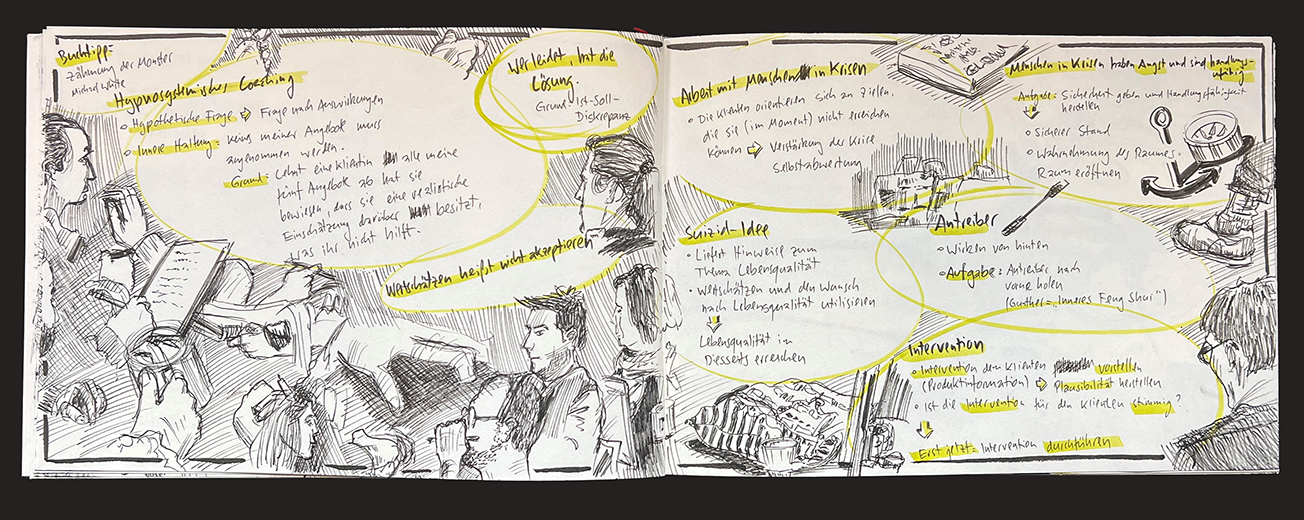 Buchtipp:
Zähmung der Monster
Michael White
Hypnosystemisches Coaching
Hypothetische Frage ⇨ Frage nach Auswirkungen
Innere Haltung: Keins meiner Angebote muss
angenommen werden.
Grund: Lehnt eine Klientin alle meine
fünf Angebote ab hat sie
bewiesen, dass sie eine realistische
Einschätzung darüber besitzt,
was ihr nicht hilft.
Wer leidet, hat die
Lösung.
Grund: Ist-Soll-
Diskrepanz
Wertschätzen heißt nicht akzeptieren
Arbeit mit Menschen in Krisen
• Die Klienten orientieren sich an Zielen,
die sie (im Moment) nicht erreichen
können ⇨ Verstärkung der Krise
Selbstabwertung
Menschen in Krisen haben Angst und sind handlungs-
unfähig
Aufgabe: Sicherheit geben und Handlungsfähigkeit
herstellen
• Sicherer Stand
• Wahrnehmung des Raumes.
Raum eröffnen
Suizid-Idee
• Liefert Hinweise zum
Thema Lebensqualität
• Wertschätzen und den Wunsch
nach Lebensqualität utilisieren
Lebensqualität im
Diesseits erreichen
Antreiber
• Wirken von hinten
• Aufgabe: Antreiber nach
vorne holen
(Gunther = "Inneres Feng Shui")
Intervention
• Intervention dem Klienten vorstellen
(Produktinformation) ⇨ Plausibilität herstellen
• Ist die Intervention für den Klienten stimmig?
Erst jetzt: Intervention durchführen